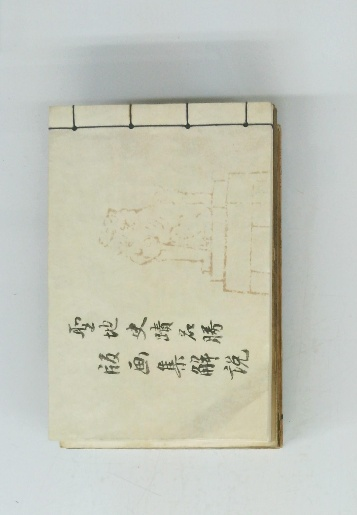 聖地史蹟名勝
版画集解説